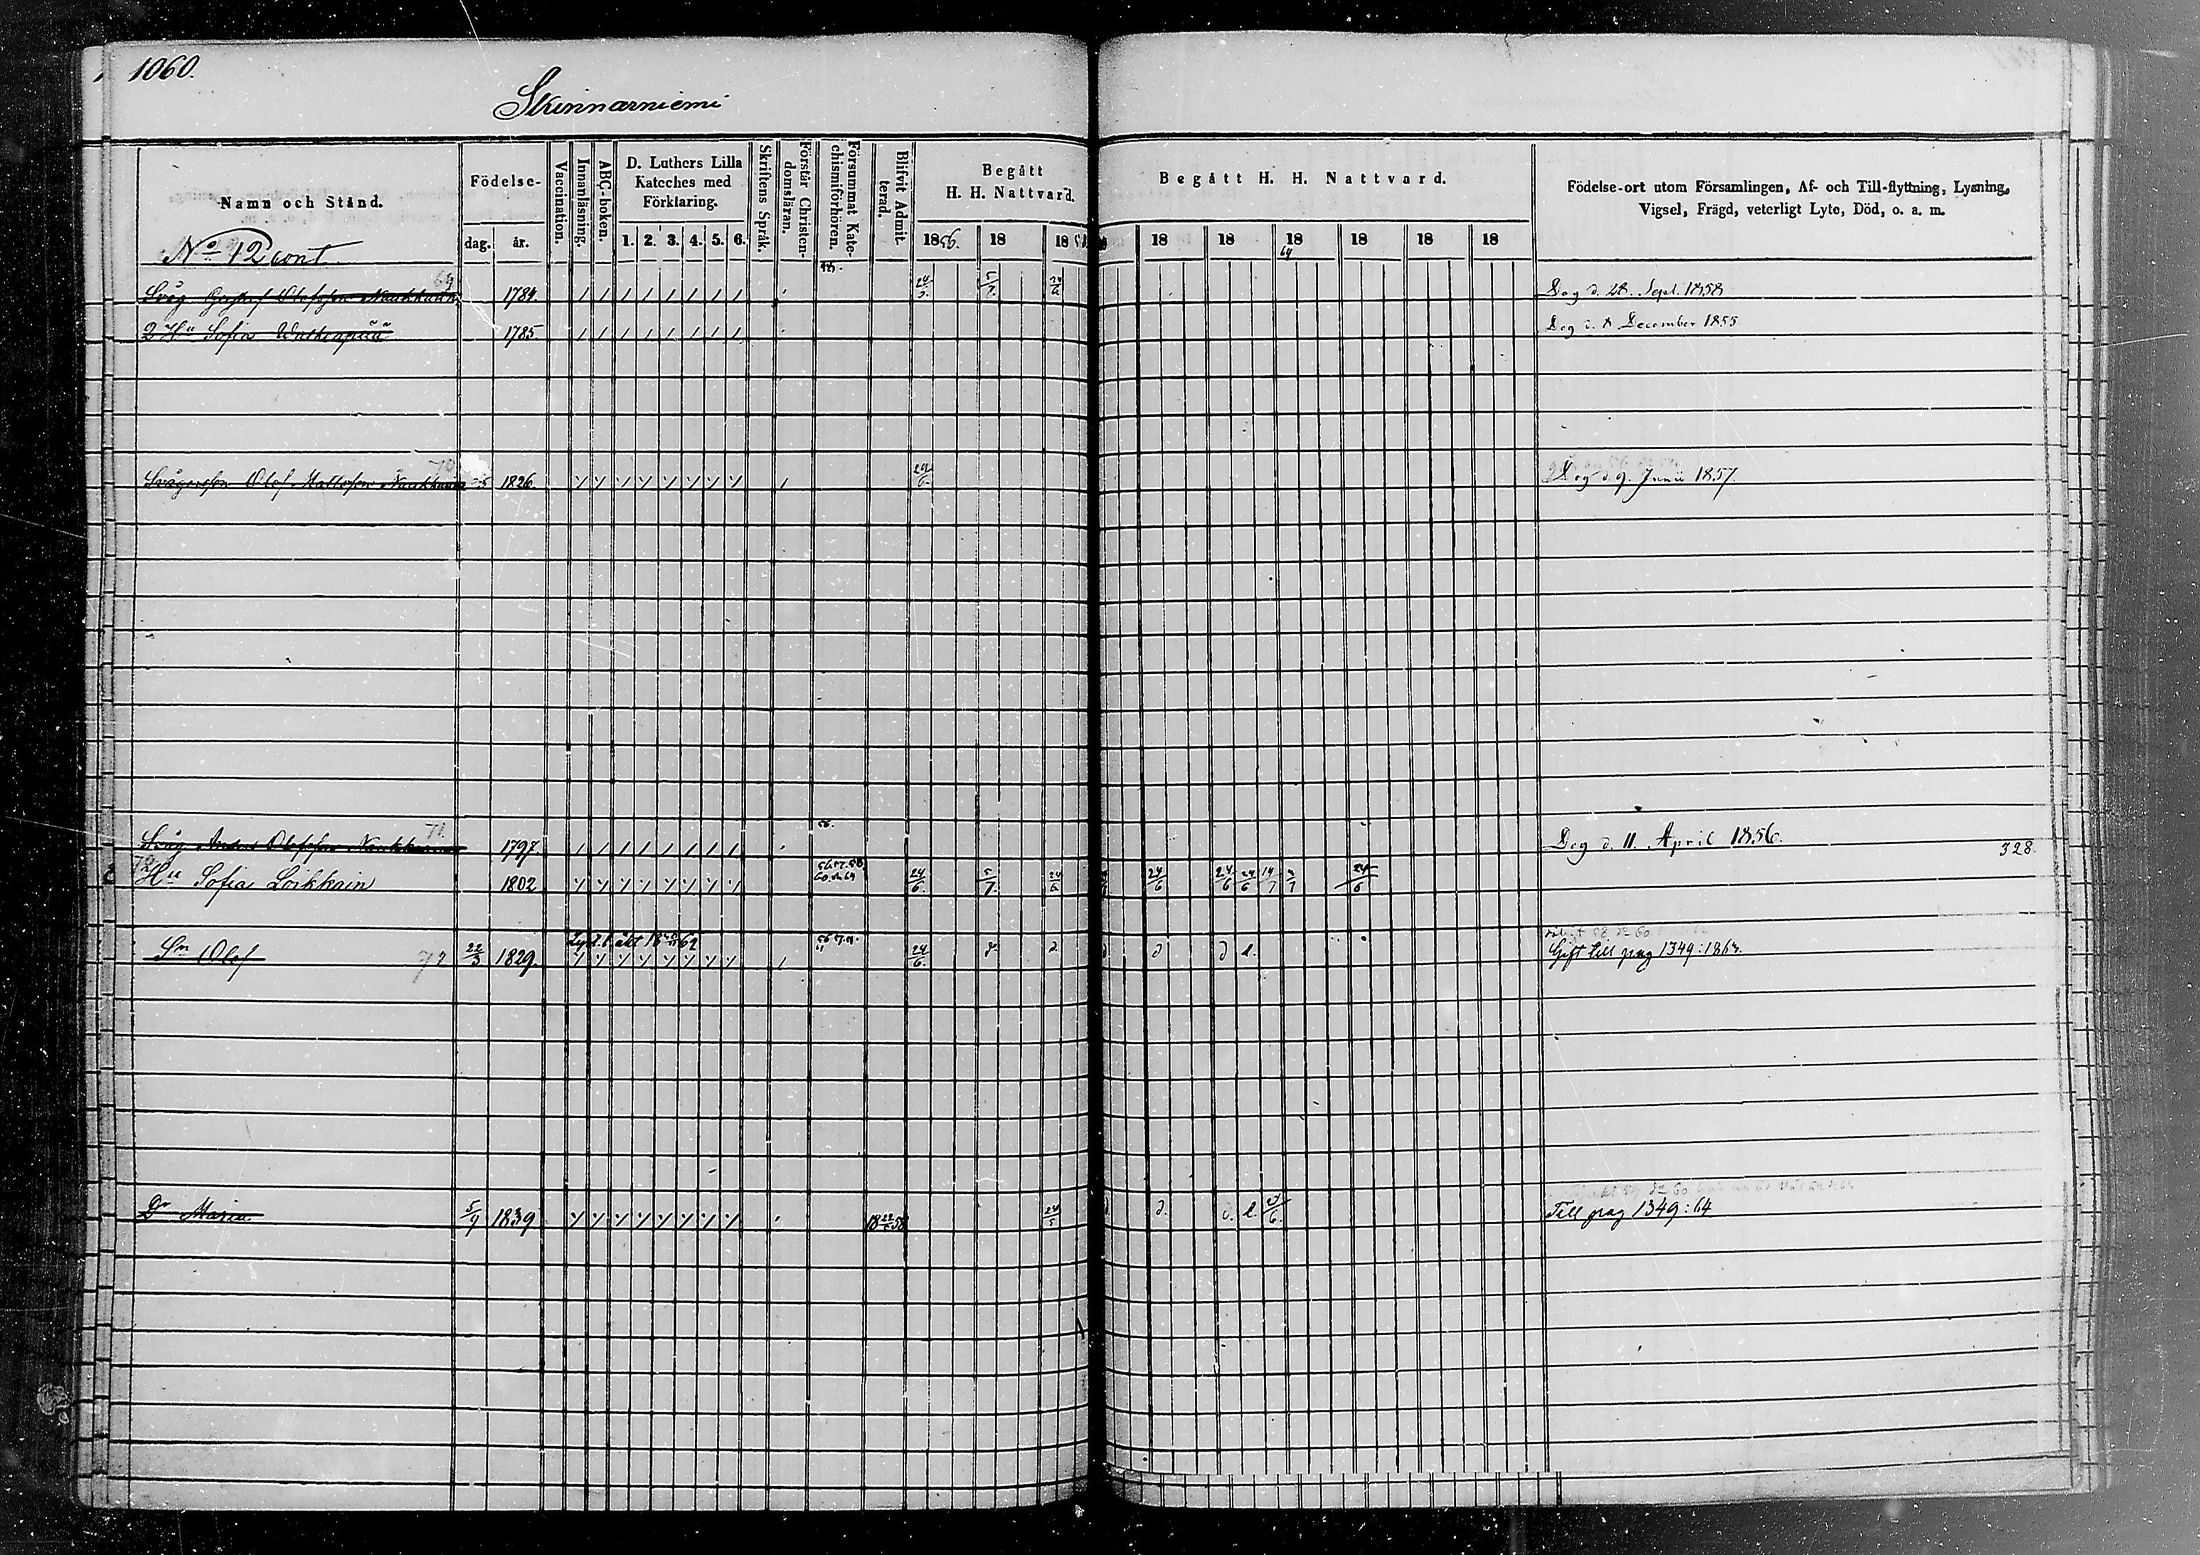 1060.
Skinnarniemi
Namn och Stånd.
Födelse-
dag.
år.
Vaccination.
Innanläsning.
ABC-boken.
D. Luthers Lilla
Kateches med
Förklaring.
1. 2. 3. 4. 5. 6.
Skriftens Språk.
Förstår Christen-
domsläran.
Försummat Kate-
chismiförhören.
Blifvit Admit-
terad.
Begått
H. H. Nattvard.
1856. 18 18
Begått H. H. Nattvard.
18 18 18 18 18 18
64
Födelse-ort utom Församlingen, Af- och Till-flyttning, Lysning,
Vigsel, Frägd, veterligt Lyte, Död, o. a. m.
No 12 cont.
69
Svåg Gustaf Olofsson Naukkarin 1784. 24/7. 5/7. 24/6 Dog d. 28. Sept. 1858
2 Hu Sofia 1785. Dog d. 8 December 1855
70
Svågerson Olof Mattsson Naukkarin 1826. 24/6. Dog d. 9. Junii 1857.
71
Svåg Anders Olofsson Naukkarinen 1797. 56. Dog d. 11 April 1856.
328.
Hu Sofia Loikkain 1802 56.57.58 24/6. 5/7. 24/6 24/6 24/6 24/6 14/7 24/6
Sn Olof 72 22/3 1829. 24/6. Gift till pag 1349: 1863.
Dr Maria 5/9 1839 24/5 Till pag 1349: 64